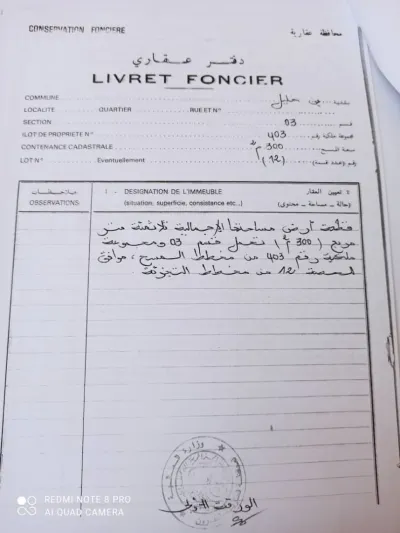 CONSERVATION FONCIERE محافظة عقارية
دفتر عقاري
LIVRET FONCIER
COMMUNE بن خليل بلدية
LOCALITE QUARTIER RUE ET N°
SECTION 03 قسم
ILOT DE PROPRIETE N° 403 مجموعة ملكية رقم
CONTENANCE CADASTRALE 300 م² سعة المسح
LOT N° Eventuellement (12)
ملاحظات
OBSERVATIONS
1 - DESIGNATION DE L'IMMEUBLE
(situation, superficie, consistance etc...)
1 تعيين العقار
(حالة - مساحة - محتوى)
قطعة أرض مساحتها الإجمالية ثلاثمئة متر
مربع (300 م²) تحمل قسم 03 ومجموعة
ملكية رقم 403 من مخطط المسح، موافق
للحصة 12 من مخطط التجزئة
وزارة
REDMI NOTE 8 PRO
AI QUAD CAMERA